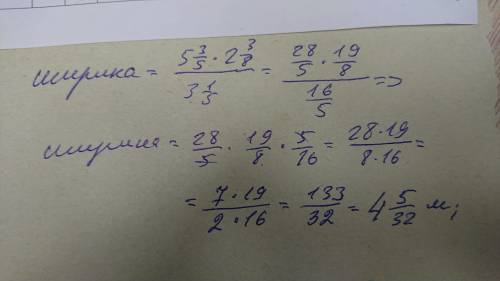 ширина = (5 3/5 · 2 3/8)/(3 1/5) = (28/5 · 19/8)/(16/5) =>
ширина = 28/5 · 19/8 · 5/16 = (28·19)/(8·16) =
= (7·19)/(2·16) = 133/32 = 4 5/32 м;